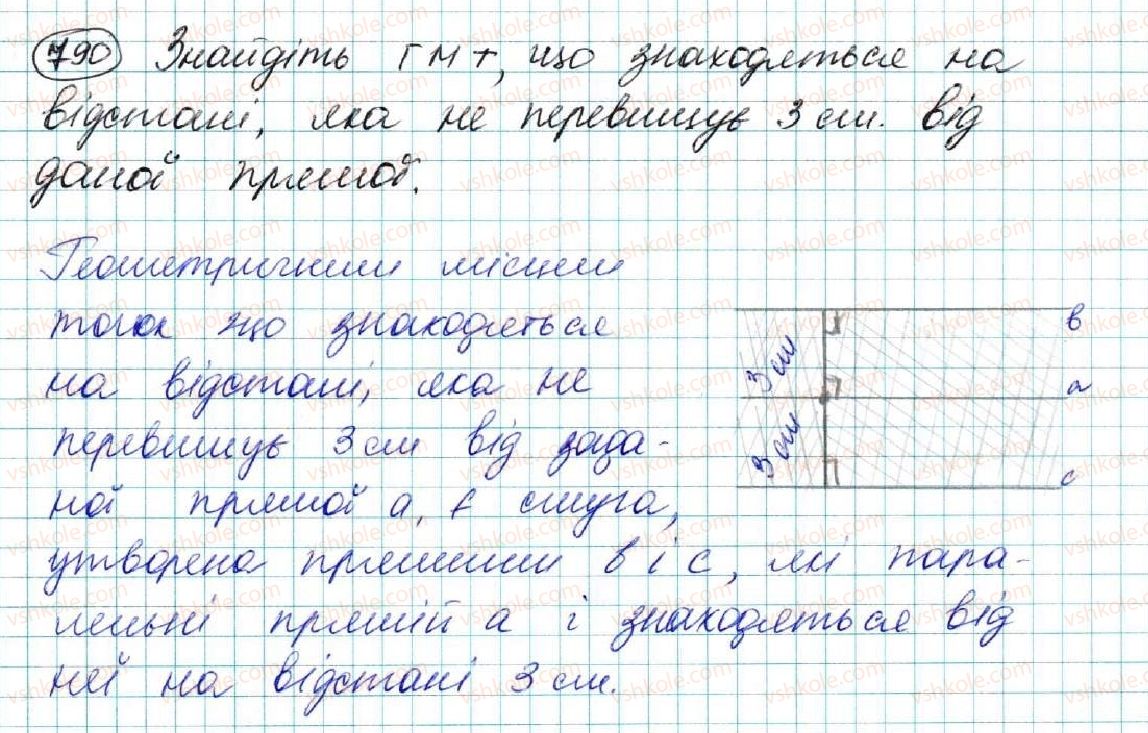 790 Знайдіть ГМТ, що знаходяться на
відстані, яка не перевищує 3 см. від
даної прямої.
Геометричним місцем
точок що знаходяться
на відстані, яка не
перевищує 3 см від зада-
ної прямої а, є смуга,
утворена прямими в і с, які пара-
лельні прямій а і знаходяться від
неї на відстані 3 см.
в
3 см
а
3 см
с
vshkole.com